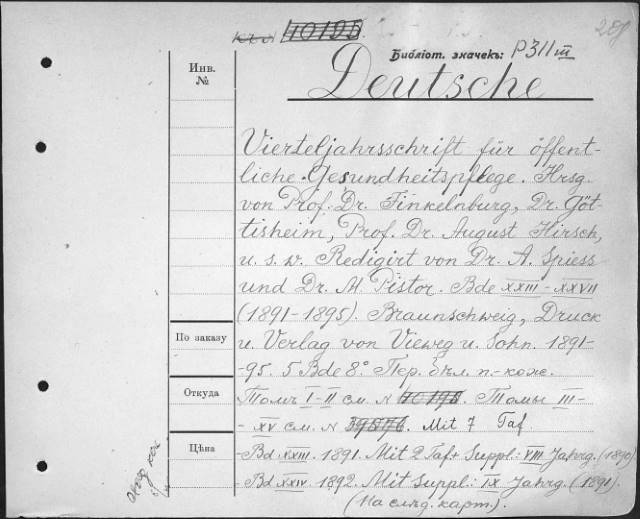 10195
Библіот. значекъ: P311 III
Инв.
№
Deutsche
Vierteljahrsschrift für öffent-
liche Gesundheitspflege. Hrsg.
von Prof. Dr. Finkelnburg, Dr. Göt-
tisheim, Prof. Dr. August Hirsch,
u. s. w. Redigirt von Dr. A. Spiess
und Dr. M. Pistor. Bde XXIII-XXVII
(1891-1895). Braunschweig, Druck
По заказу
u. Verlag von Vieweg u. Sohn. 1891-
-95. 5 Bde 8°. Пер. бѣл. п.-кож.
Откуда
Томъ I-II см. N 10195. Томы III-
-XV см. N Mit 7 Taf.
Цѣна
-Bd XXIII. 1891. Mit 2 Taf + Suppl.: VIII Jahrg. (1890)
-Bd XXIV. 1892. Mit Suppl.: IX Jahrg. (1891).
(На слѣд. карт.).